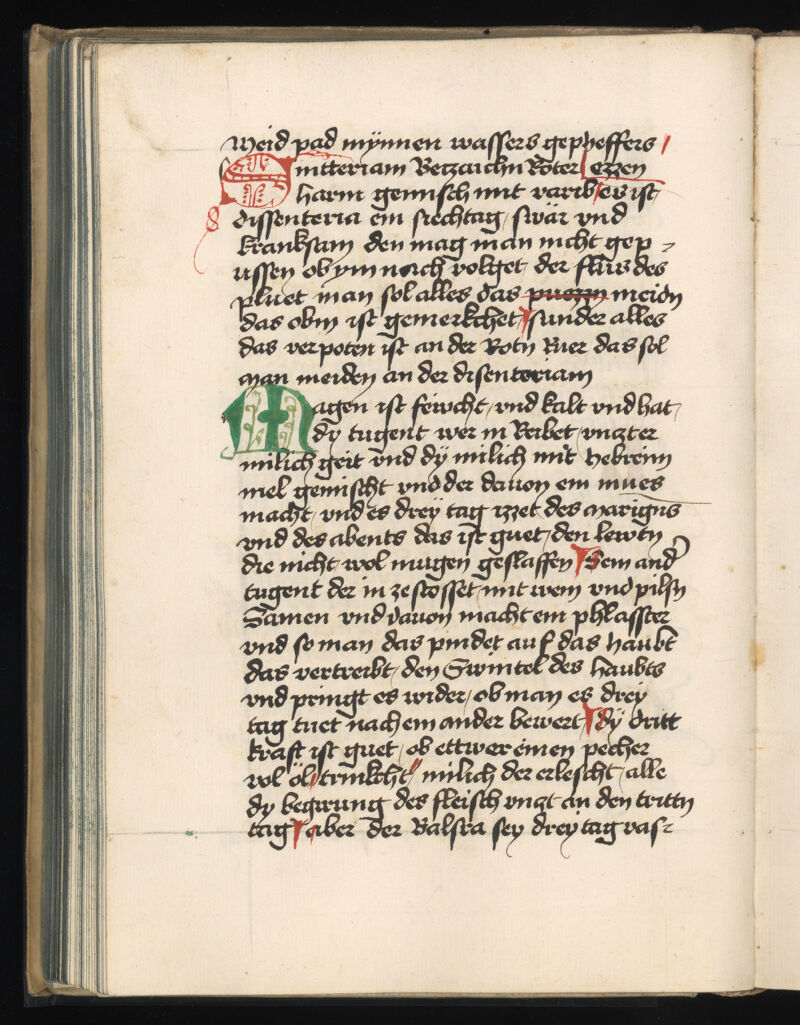 meid pad mynnen wassers gepheffers /
Dintteriam Beczaichn Röter ezzen
harm gemisch mit varib / es ist
dissenteria ein siechtag / swär vnd
kranksam den mag man nicht gep
üssen ob ym nach volget der fluss des
pluet man sol alles das puezzn meidn
das obm ist gemerkchet / sunder alles
das verpoten ist an der Rotn Ruer das sol
man meiden an der disenteriam
Magen ist fewcht / vnd kalt vnd hat /
dy tugent wer in Reibet / vnczt er
milich geit vnd dÿ milich mit
mel gemischt vnd der dauon ein mues
macht / vnd es drey tag izzet des margins
vnd des abents das ist guet / den lewtn
die nicht wol mugen geslaffen Sein and
tugent der in zestosset / mit wein vnd pilsn
Samen vnd dauon macht ein phlasster
vnd so man das pindet auf das haubt
das vertreibt / den Swintel des haubts
vnd pringt es wider / ob man es drey
tag tuet nach ein ander bewert dÿ dritt
kraft ist guet / ob ettwer einen pecher
vol öl trinkcht milich der erlescht / alle
dy begirung des fleisch vnczt an den trittn
tag aber der Balsra sey drey tag vas